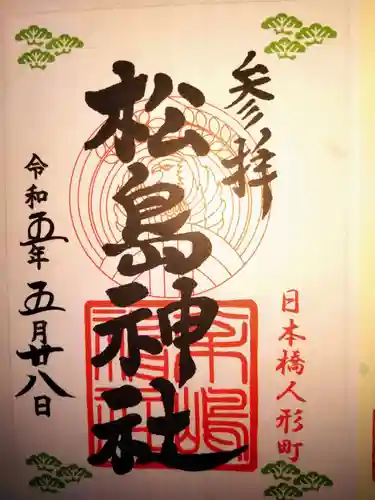 参拝
日本橋人形町
松島神社
令和五年五月廿八日